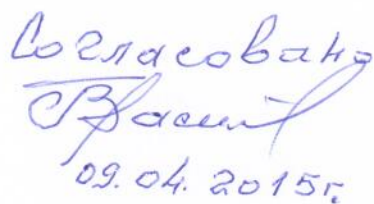 Согласовано
09.04.2015г.